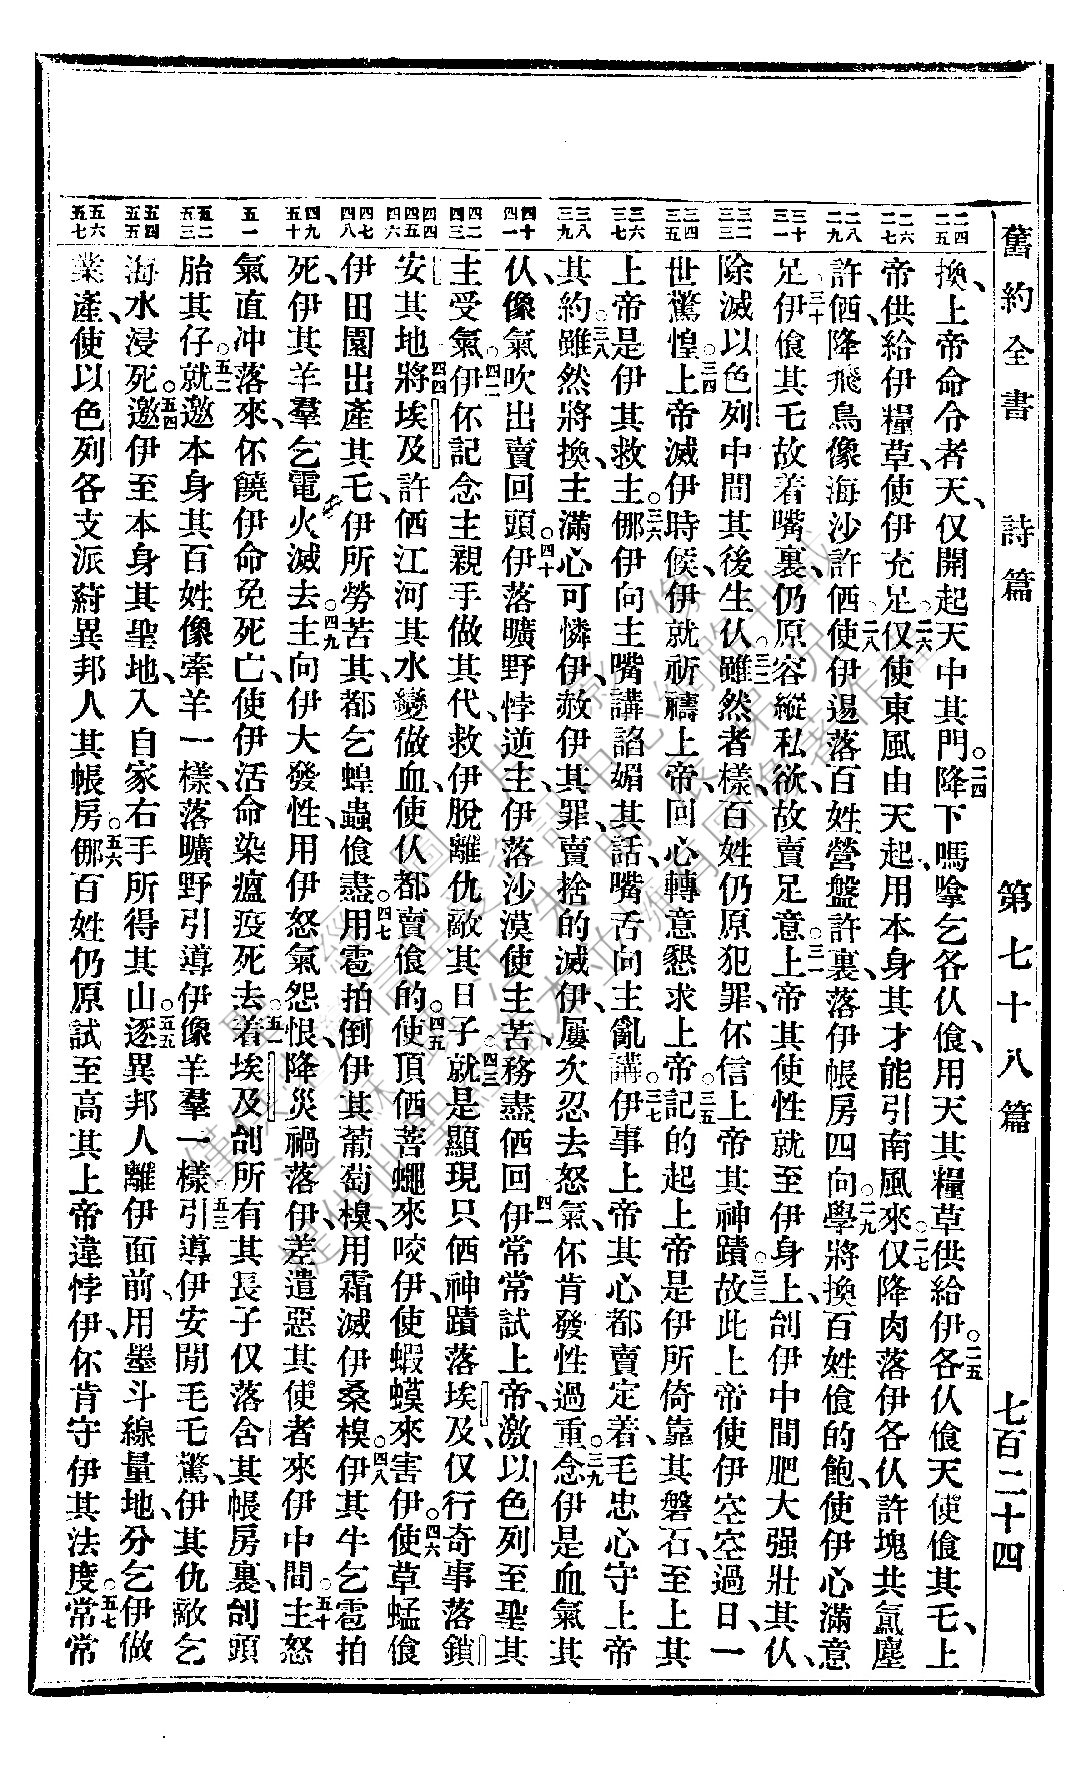 舊約全書 詩篇 第七十八篇 七百二十四
二四 二五
換、上帝命令者天、仅開起天中其門。二四降下嗎喰乞各仈飡、用天其糧草供給伊。二五各仈飡天使飡其乇、上
二六 二七
帝供給伊糧草、使伊充足。二六仅使東風由天起、用本身其才能引南風來。二七仅降肉落伊各仈、許塊共氤塵
二八 二九
許、𠆧降飛鳥像海沙許𠆧。二八使伊遏落百姓營盤許裏、落伊帳房四向學。二九將換百姓飡的飽、使伊心滿意
三十 三一
足。三十伊飡其乇故着嘴裏、仍原容縱私欲、故賣足意。三一上帝其使性就至伊身上、刣伊中間肥大强壯其仈、
三二 三三
除滅以色列中間其後生仈。三二雖然者樣、百姓仍原犯罪、伓信上帝其神蹟。三三故此上帝使伊空空過日、一
三四 三五
世驚惶。三四上帝滅伊時候、伊就祈禱上帝、回心轉意懇求上帝。三五記的起上帝是伊所倚靠其磐石、至上其
三六 三七
上帝是伊其救主。三六㑚伊向主嘴講諂媚其話、嘴舌向主亂講。三七伊事上帝其心都賣定着、毛忠心守上帝
三八 三九
其約。三八雖然將換、主滿心可憐伊、赦伊其罪、賣捨的滅伊、屢次忍去怒氣、伓肯發性過重。三九念伊是血氣其
四十 四一
仈、像氣吹出賣回頭。四十伊落曠野悖逆主、伊落沙漠使主苦、務盡𠆧回。四一伊常常試上帝、激以色列至聖其
四二 四三
主受氣。四二伊伓記念主親手做其代、救伊脫離仇敵其日子。四三就是顯現只𠆧神蹟落埃及、仅行奇事落鎖
四四 四五 四六
安其地。四四將埃及許𠆧江河其水、變做血、使仈都賣飡的。四五使頂𠆧菩蠅來咬伊、使蝦蟆來害伊。四六使草蜢飡
四七 四八
伊田園出產其乇、伊所勞苦其、都乞蝗蟲飡盡。四七用雹拍倒伊其葡萄模、用霜滅伊桑模。四八伊其牛乞雹拍
四九 五十
死、伊其羊羣乞電火滅去。四九主向伊大發性、用伊怒氣怨恨、降災禍落伊、差遣惡其使者來伊中間。五十主怒
五一
氣直冲落來、伓饒伊命免死亡、使伊活命染瘟疫死去。五一着埃及刣所有其長子、仅落含其帳房裏、刣頭
五二 五三
胎其仔。五二就邀本身其百姓像牽羊一樣、落曠野引導伊像羊羣一樣。五三引導伊安閒毛乇驚、伊其仇敵乞
五四 五五
海水浸死。五四邀伊至本身其聖地、入自家右手所得其山。五五逐異邦人離伊面前、用墨斗線量地、分乞伊做
五六 五七
業產、使以色列各支派蒔異邦人其帳房。五六㑚百姓仍原試至高其上帝違悖伊、伓肯守伊其法度。五七常常